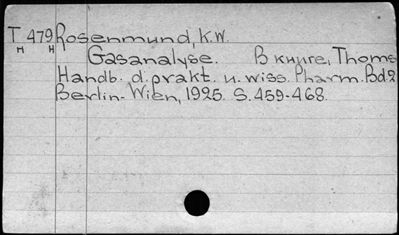 T 479 Rosenmund, K.W.
н н
Gasanalyse. В книге, Thoms
Handb. d. prakt. u. wiss. Pharm. Bd 2
Berlin-Wien, 1925. S. 459-468.